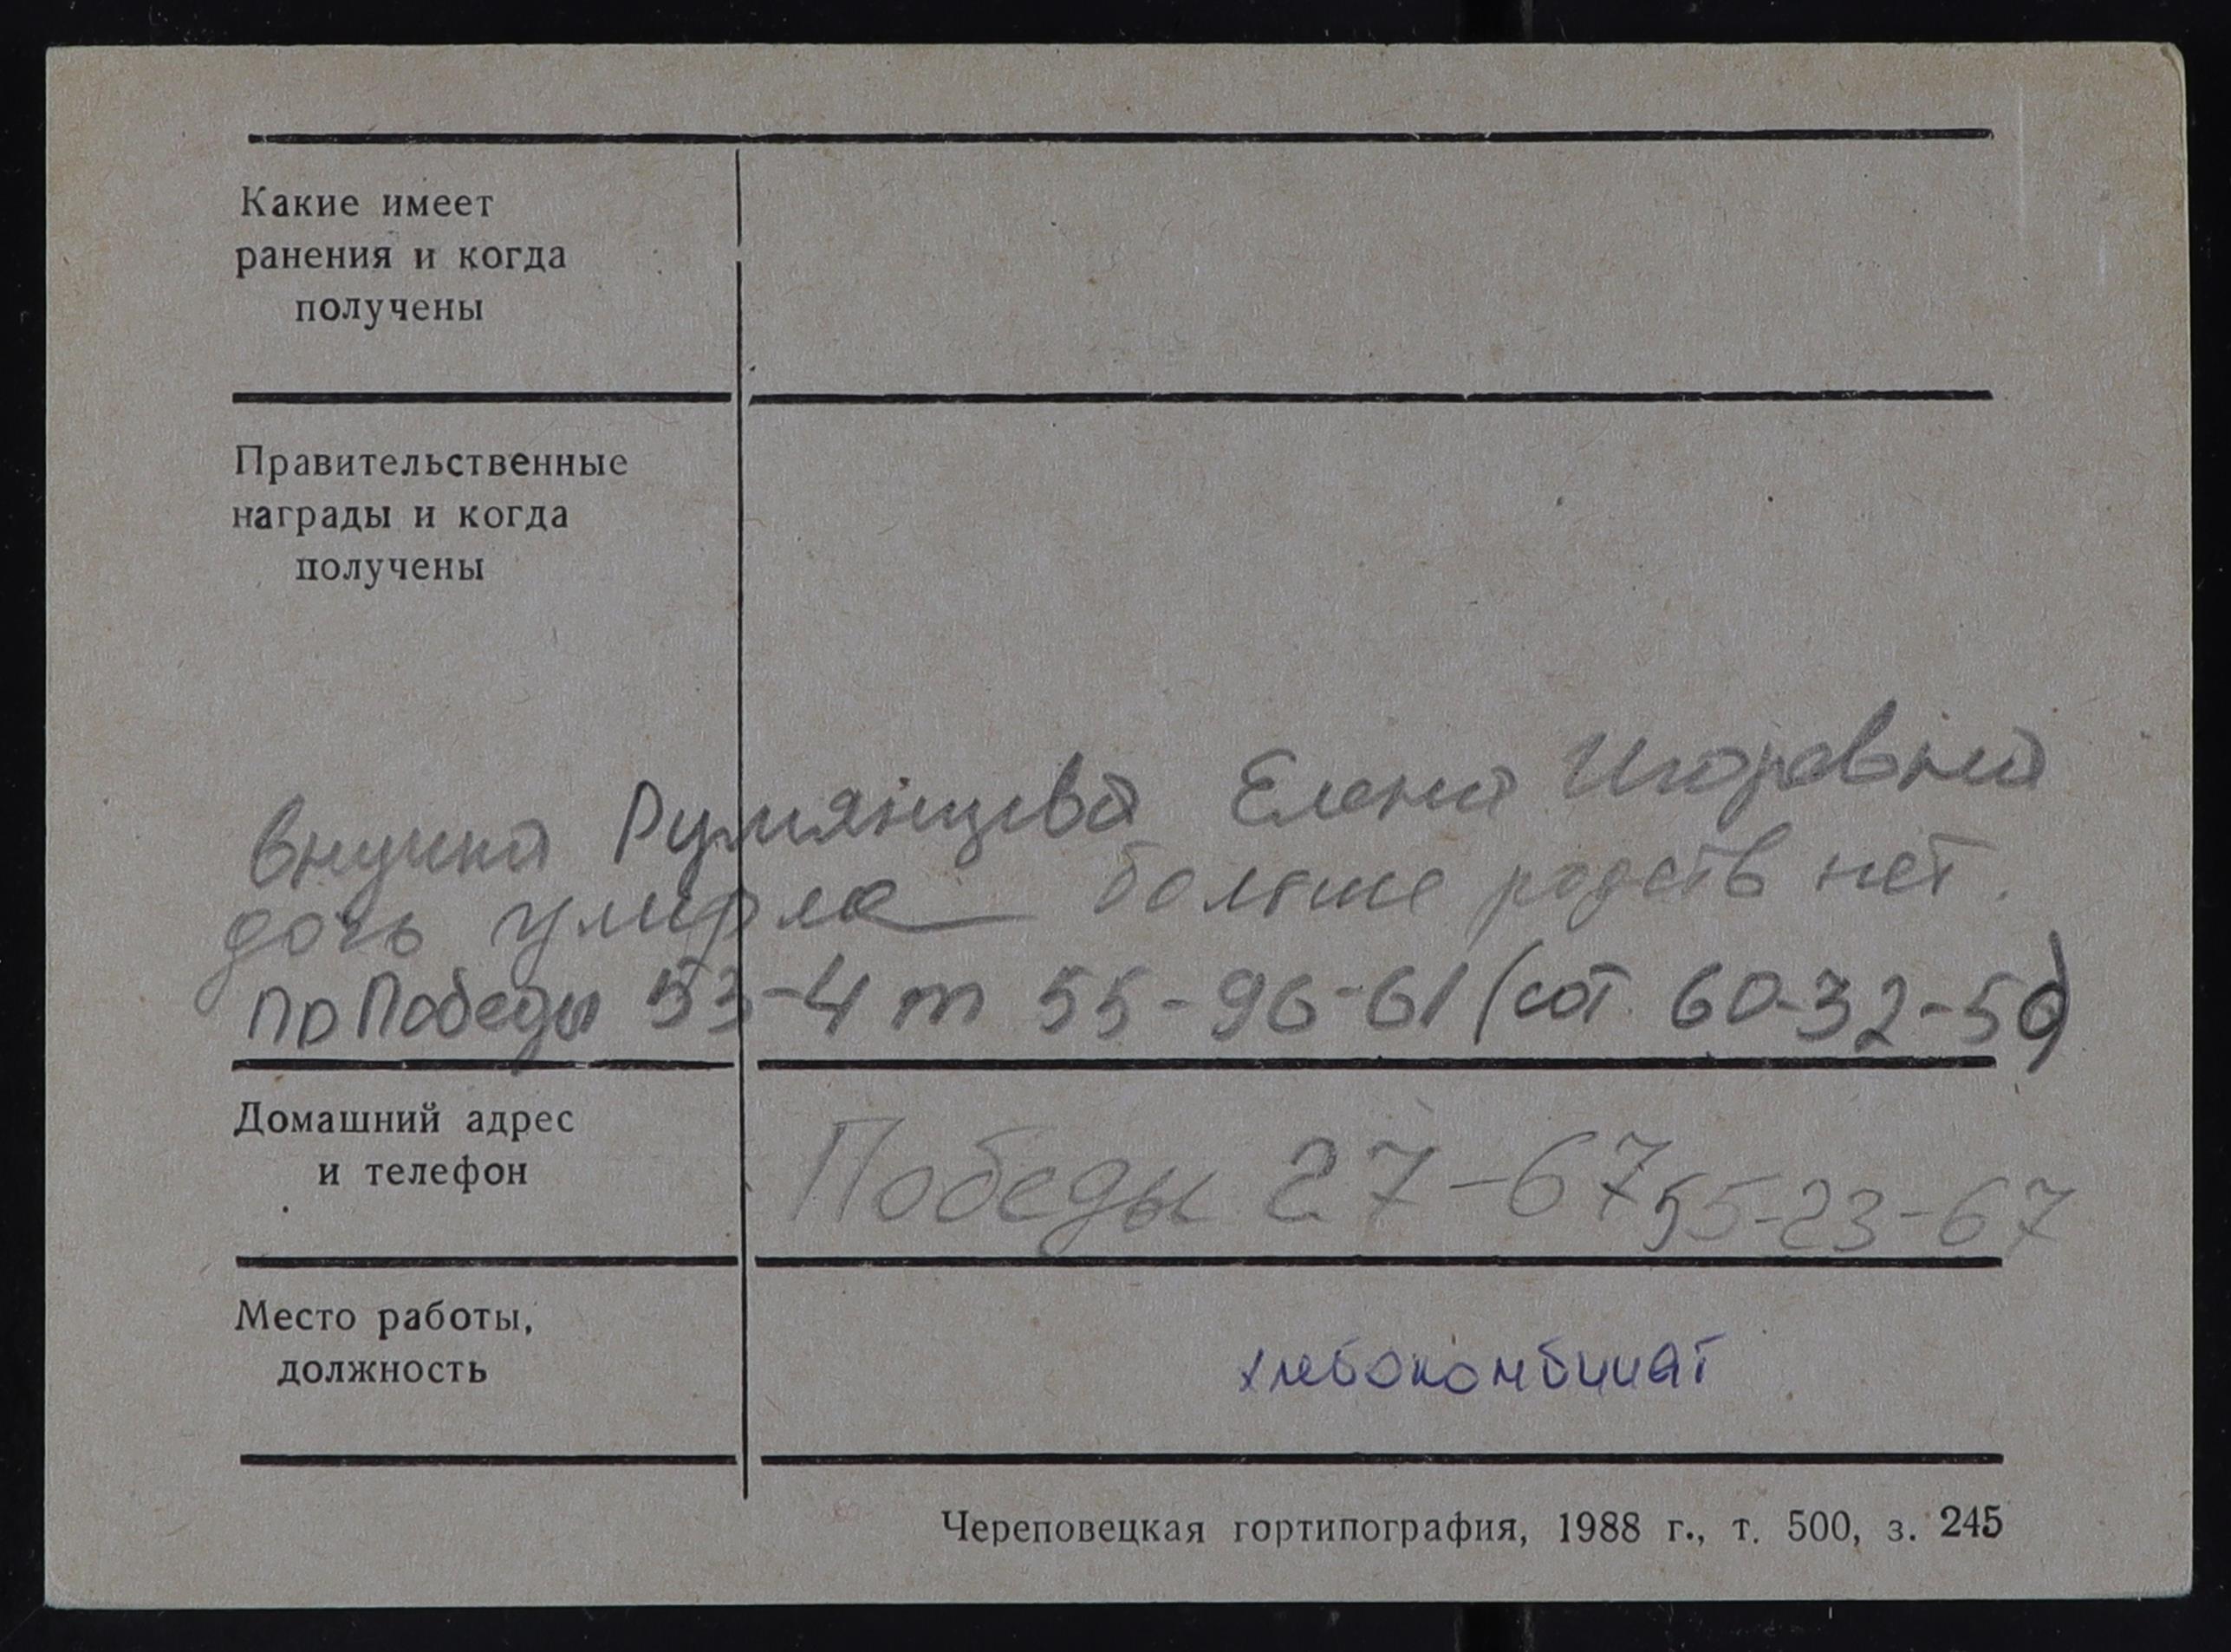 Какие имеет
ранения и когда
получены
Правительственные
награды и когда
получены
внучка Румянцева Елена Игоревна
дочь умерла больше родств нет.
пр Победы 53-4 т 55-96-61 (сот. 60-32-50)
Домашний адрес
и телефон
Победы 27-67 55-23-67
Место работы,
должность
хлебокомбинат
Череповецкая гортипография, 1988 г., т. 500, з. 245